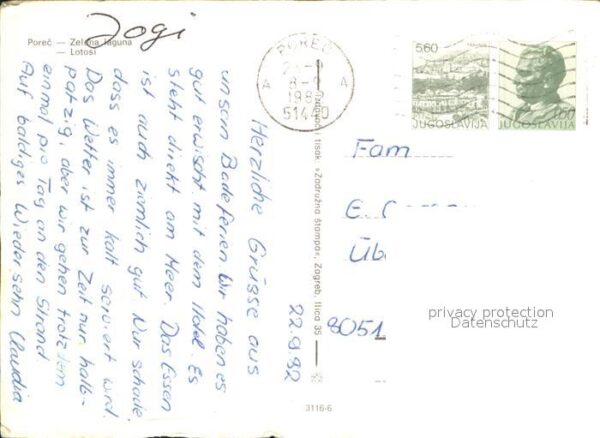 Jogi
Poreč — Zelena laguna
— Lotosi
Herzliche Grüsse aus
unsern Badeferien. Wir haben es
gut erwischt mit dem Hotel. Es
steht direkt am Meer. Das Essen
ist auch ziemlich gut. Nur schade,
dass es immer kalt serviert wird.
Das Wetter ist zur Zeit nur halb-
patzig, aber wir gehen trotzdem
einmal pro Tag an den Strand
Auf baldiges Wiedersehn Claudia
22.9.82
POREČ
A A
1982
51440
5,60
JUGOSLAVIJA
JUGOSLAVIJA
i tisak: »Zadružna štampa«, Zagreb, Ilica 35
Fam
E.
Üb
8051
privacy protection
Datenschutz
3116-6